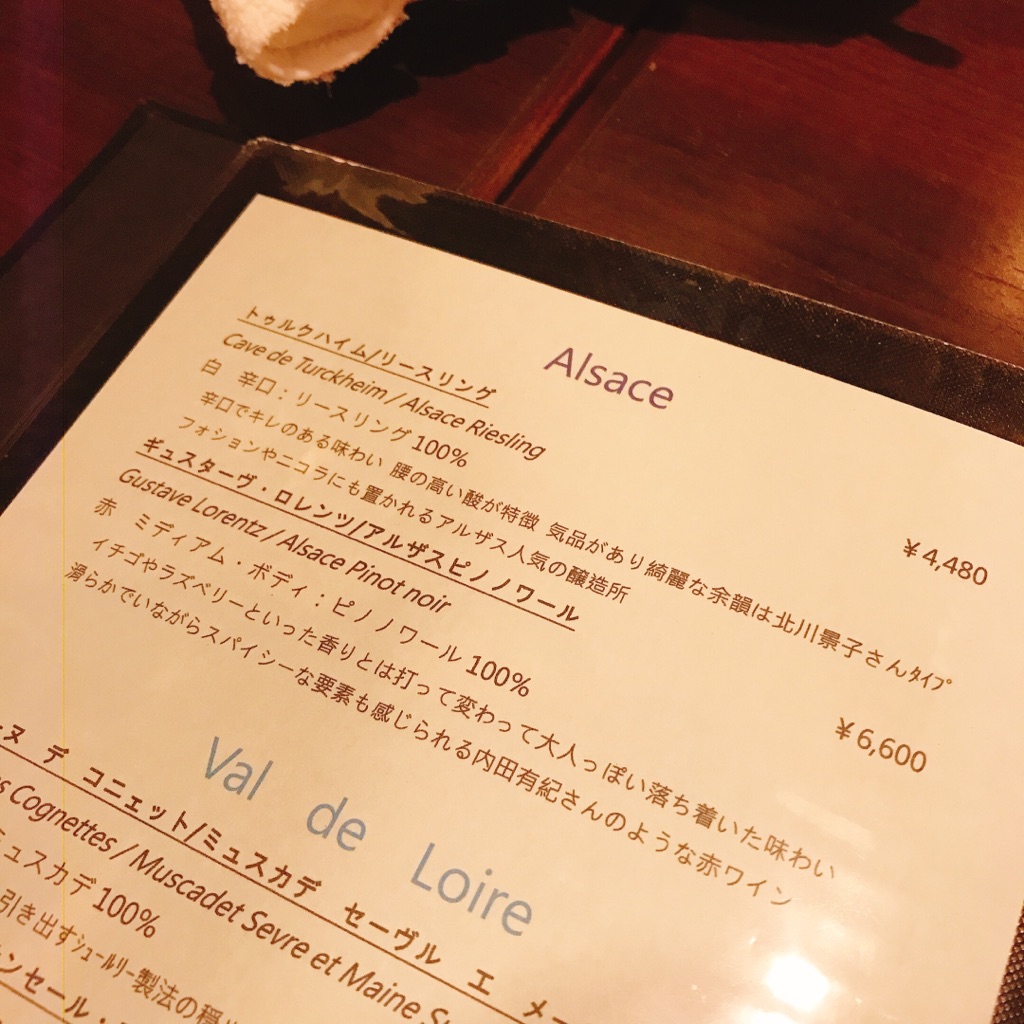 Alsace
トゥルクハイム/リースリング
Cave de Turckheim / Alsace Riesling
¥4,480
白 辛口：リースリング 100%
辛口でキレのある味わい 腰の高い酸が特徴 気品があり綺麗な余韻は北川景子さんﾀｲﾌﾟ
フォションやニコラにも置かれるアルザス人気の醸造所
ギュスターヴ・ロレンツ/アルザスピノノワール
Gustave Lorentz / Alsace Pinot noir
¥6,600
赤 ミディアム・ボディ：ピノノワール 100%
イチゴやラズベリーといった香りとは打って変わって大人っぽい落ち着いた味わい
滑らかでいながらスパイシーな要素も感じられる内田有紀さんのような赤ワイン
Val de Loire
ーヌ デ コニェット/ミュスカデ セーヴル エ メー
s Cognettes / Muscadet Sevre et Maine S
ミュスカデ 100%
引き出すｼｭｰﾙﾘｰ製法の穏
ンセール・